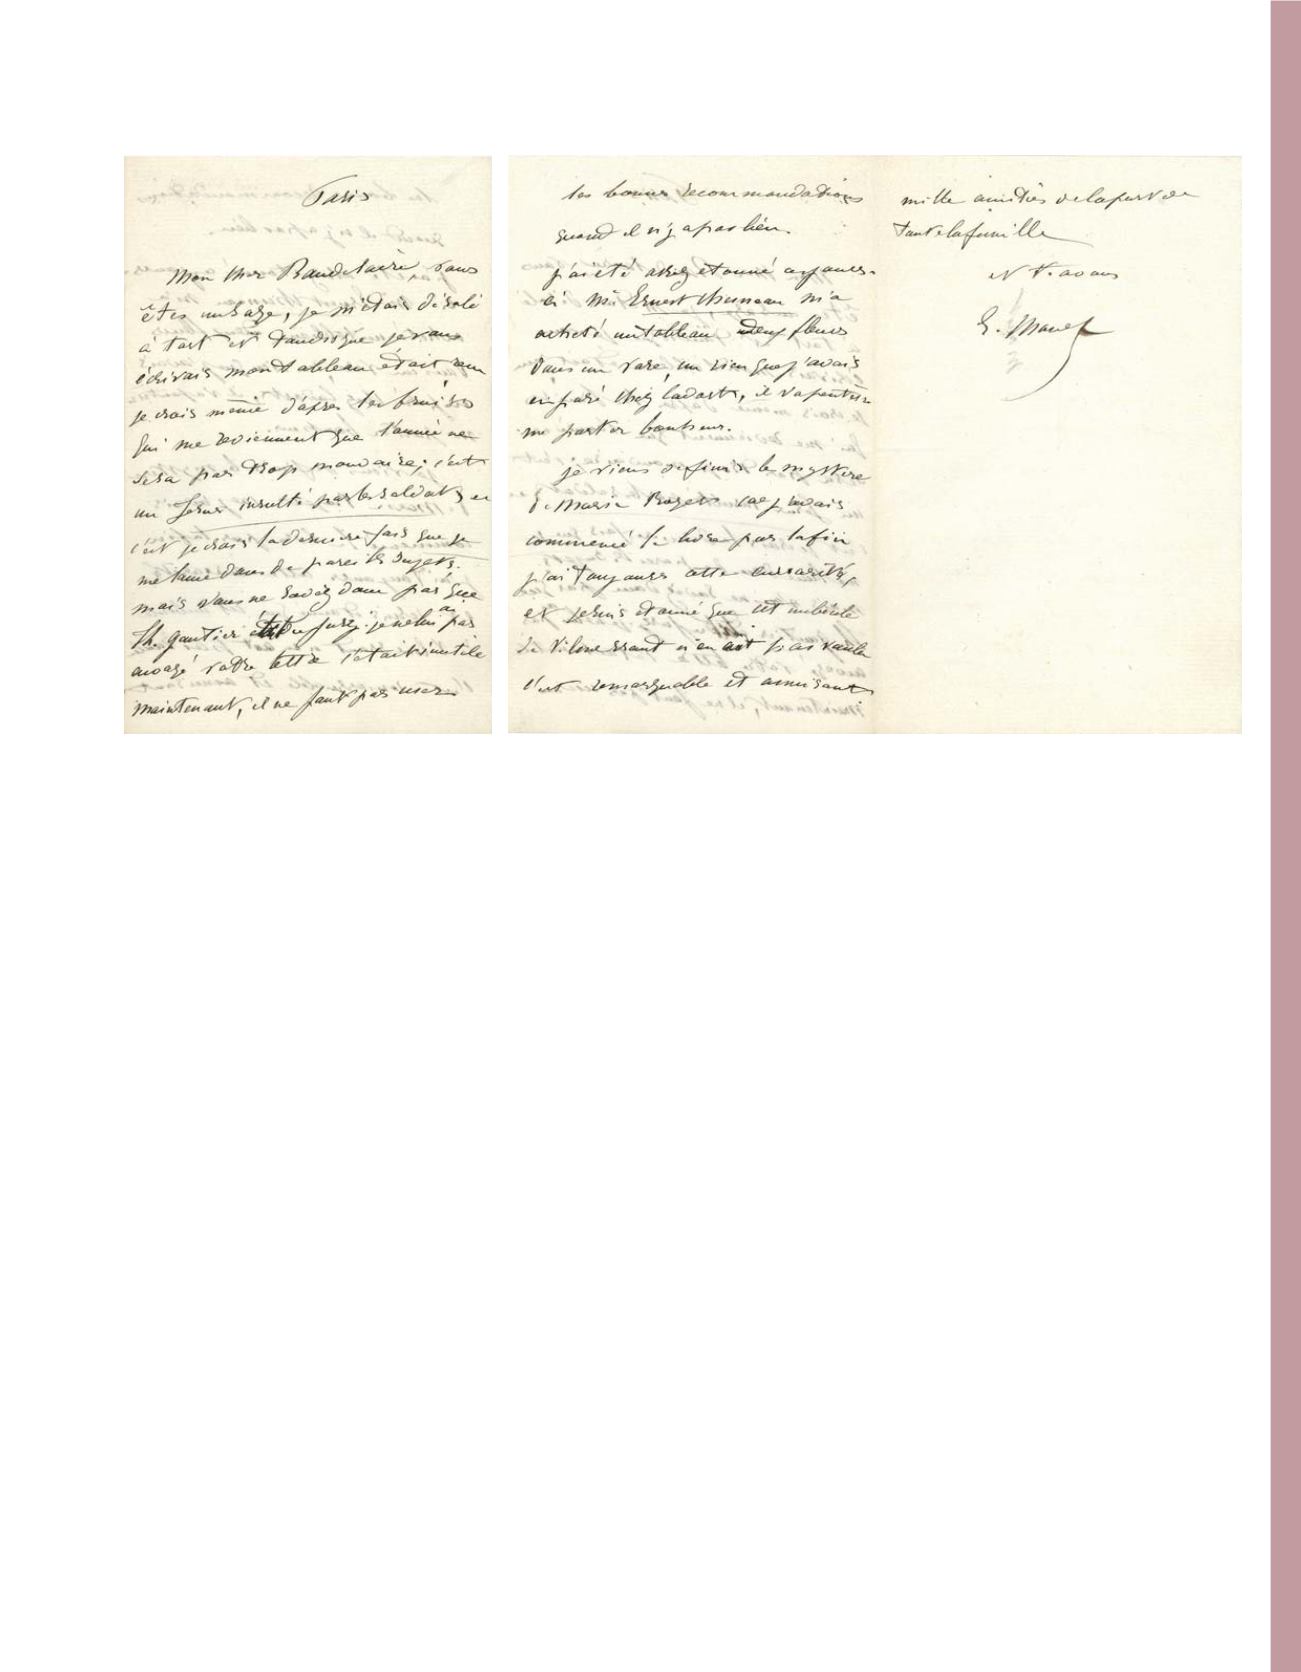 Paris
Mon cher Baudelaire, vous
êtes un sage, je m'étais désolé
à tort et tandis que je vous
écrivais mon tableau était reçu
je crois même d'après les bruits
qui me reviennent que l'année ne
sera pas trop mauvaise; c'est
un Jesus insulté par les soldats
c'est je crois la dernière fois que je
me lance dans de pareils sujets.
mais vous ne savez donc pas que
Th. gautier était du jury. je ne lui ai pas
envoyé votre lettre c'était inutile
maintenant, il ne faut pas user
les bonnes recommandations
quand il n'y a pas lieu.
j'ai été assez étonné ces jours-
ci Mr. Ernest Chesneau m'a
acheté un tableau deux fleurs
dans un vase, un rien que j'avais
exposé chez Cadart, il va peut être
me porter bonheur.
je viens de finir le mystère
de Maria Roget car j'avais
commencé la chose par la fin
j'ai toujours cette curiosité,
et je suis étonné que cet imbécile
de Villemessant n'en ait pas voulu
c'est remarquable et amusant
mille amitiés de la part de
toute la famille
et T. à vous
E. Manet